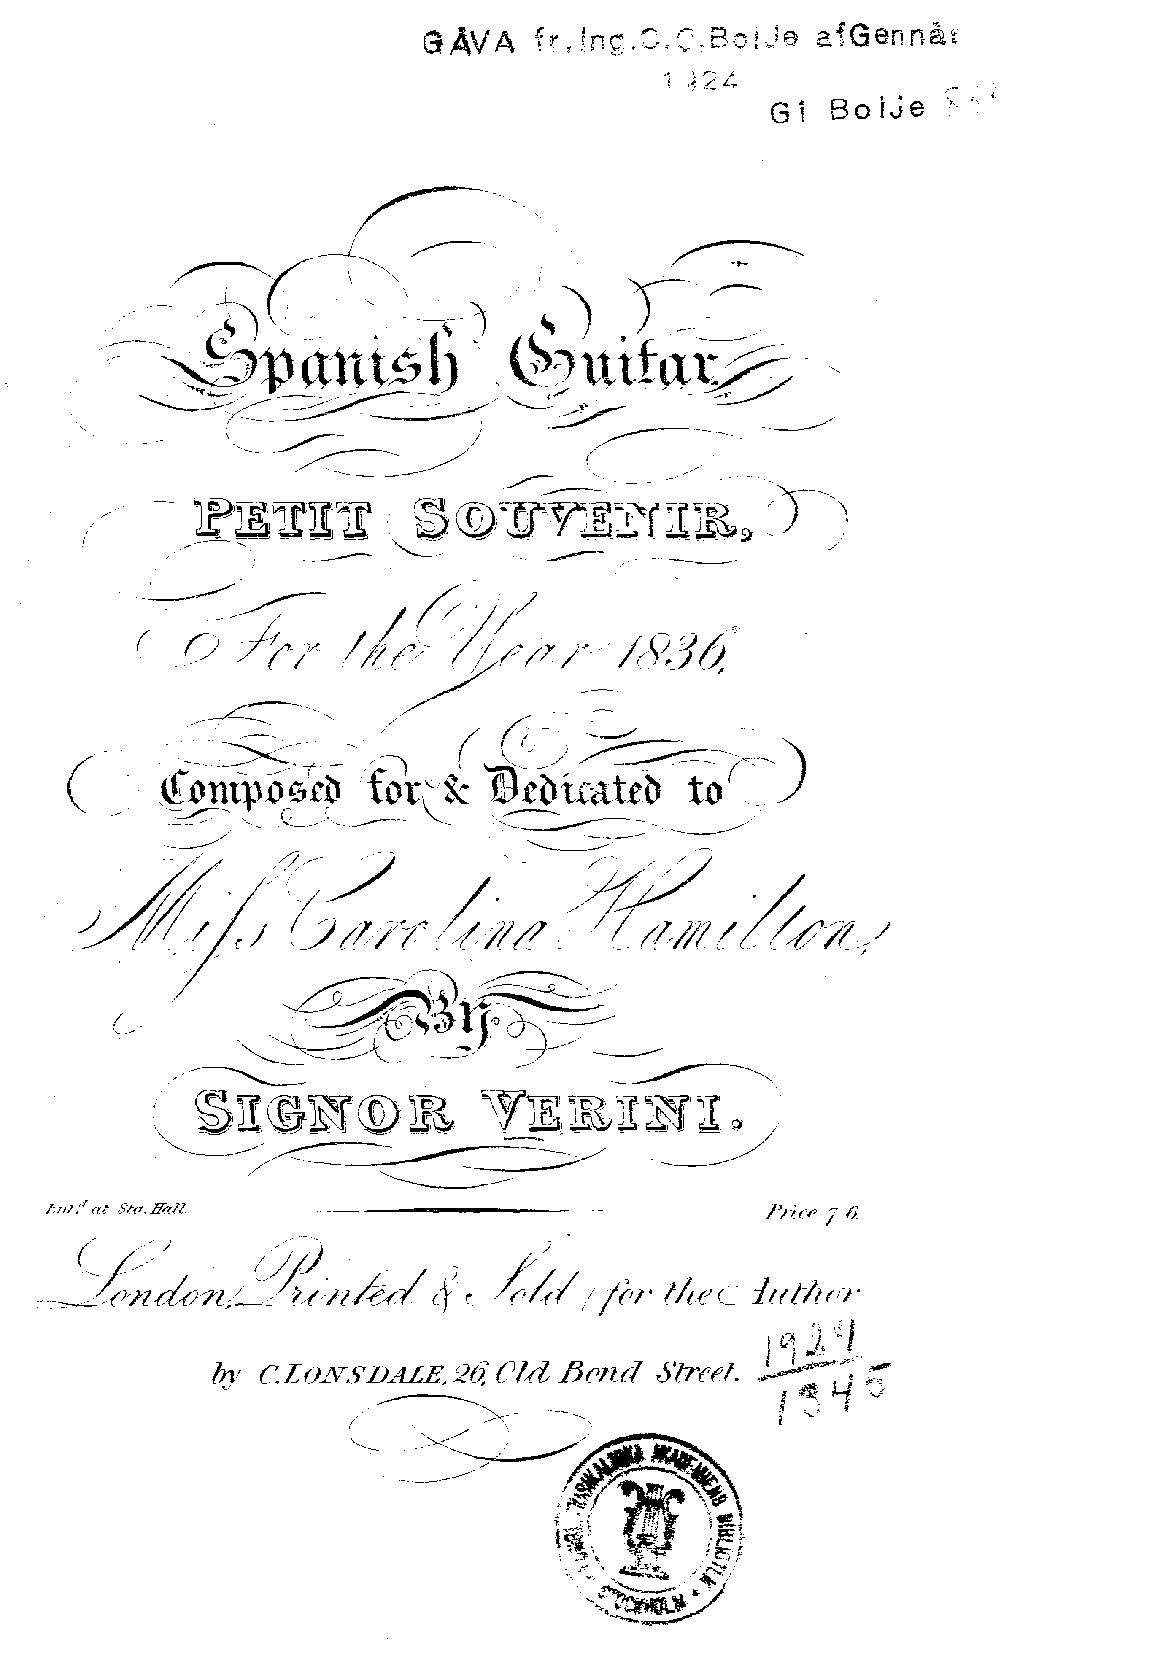 GÅVA fr.Ing.C.C.Bolje afGennär
1924
G1 Bolje
Spanish Guitar
PETIT SOUVENIR,
For the Year 1836,
Composed for & Dedicated to
Miſs Carolina Hamilton,
By
SIGNOR VERINI.
Ent.d at Sta. Hall.
Price 7 6.
London, Printed & Sold, for the Author
by C. LONSDALE, 26, Old Bond Street.
1924
1345
MUSIKALISKA AKADEMIENS BIBLIOTEK • STOCKHOLM